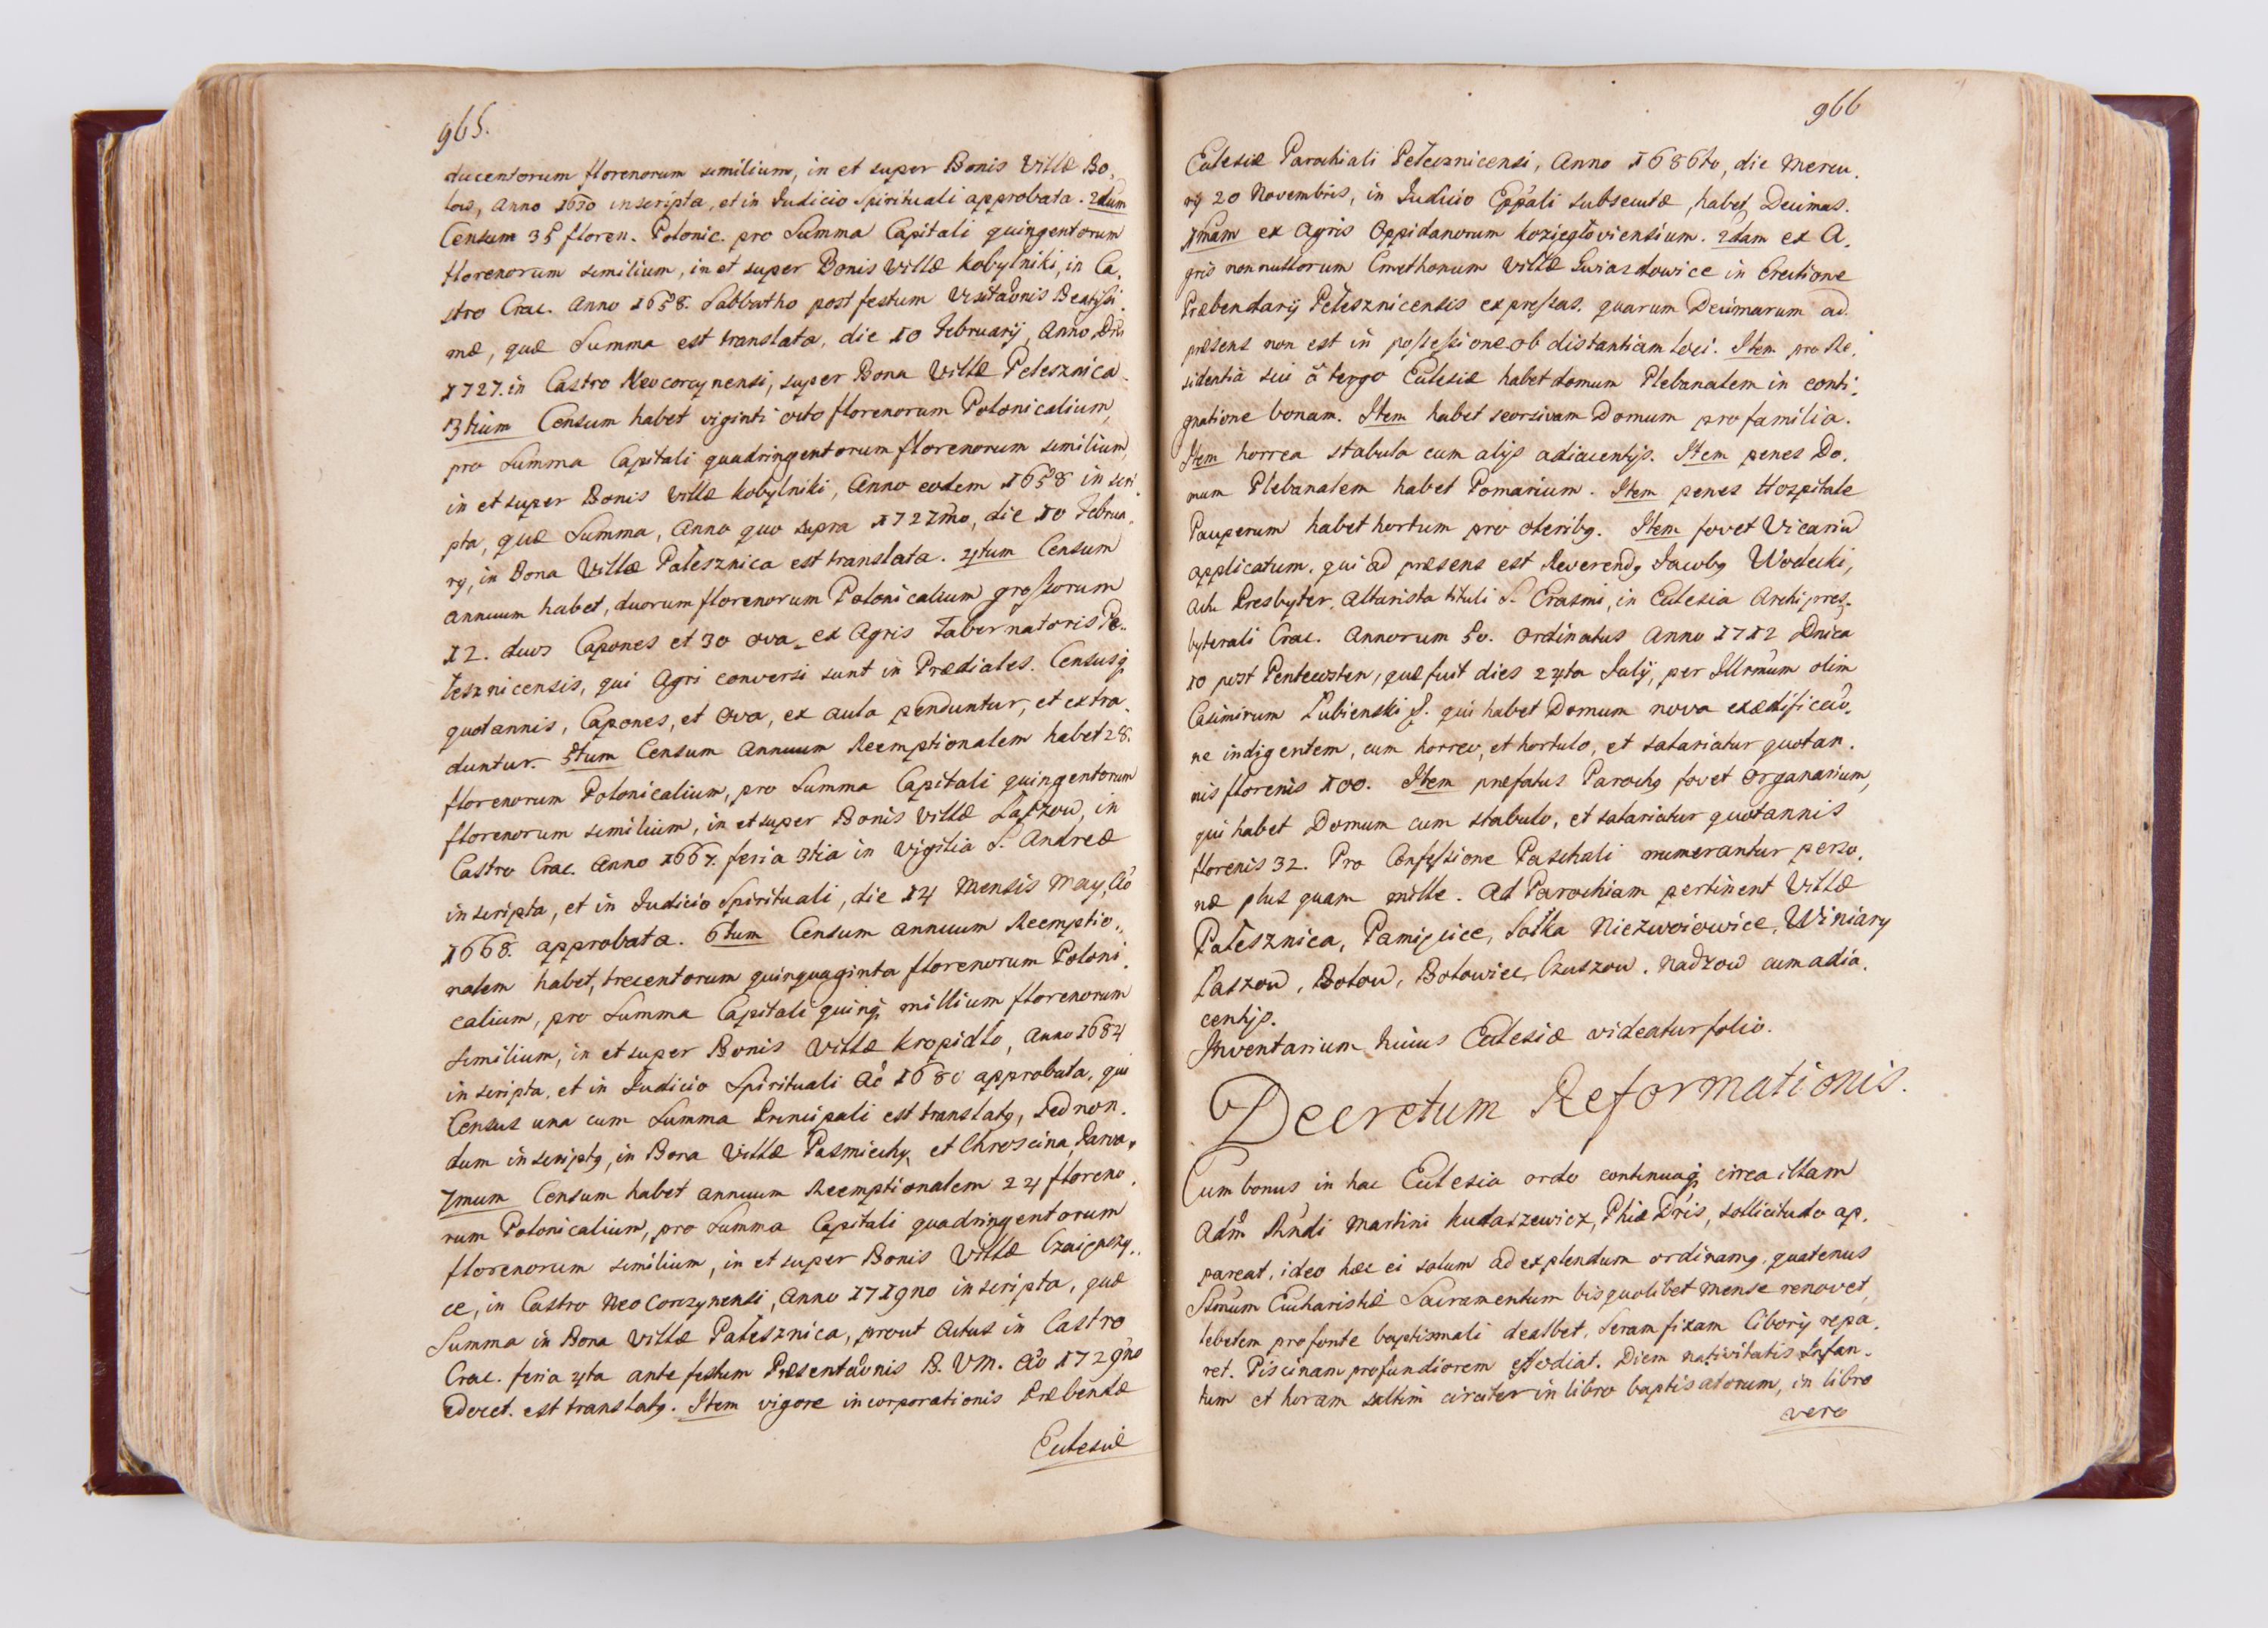 965.
ducentorum florenorum similium, in et super Bonis Villæ Bo,
low, Anno 1650 inscripta, et in Judicio Spirituali approbata. 2dum
Censum 35 floren. Polonic. pro Summa Capitali quingentorum
florenorum similium, in et super Bonis Villæ Kobylniki, in Ca,
stro Crac. Anno 1658. Sabbatho post festum Visitaõnis Beatissi,
mæ, quæ Summa est translata, die 10 February, Anno Dni
1727. in Castro Neocorcynensi, super Bona Villæ Pelesznica
3tium Censum habet viginti octo florenorum Polonicalium,
pro Summa Capitali quadringentorum florenorum similium,
in et super Bonis Villæ Kobylniki, Anno eodem 1658 inscri,
pta, quæ Summa, Anno quo supra 1727mo, die 10 Februa,
ry, in Bona Villæ Palesznica est translata. 4tum Censum
annuum habet, duorum florenorum Polonicalium grossorum
12. duos Capones et 30 ova, ex Agris Tabernatoris Pe,
lesznicensis, qui Agri conversi sunt in Prædiales. Censusq;
quotannis, Capones, et Ova, ex aula penduntur, et extra,
duntur. 5tum Censum Annuum Reemptionalem habet 28.
florenorum Polonicalium, pro Summa Capitali quingentorum
florenorum similium, in et super Bonis Villæ Łaszow, in
Castro Crac. Anno 1667. feria 3tia in Vigilia S. Andreæ
inscripta, et in Judicio Spirituali, die 14 Mensis May, Aõ
1668. approbata. 6tum Censum annuum Reemptio,
nalem habet, trecentorum quinquaginta florenorum Poloni,
calium, pro Summa Capitali quinq; millium florenorum
similium, in et super Bonis Villæ Kropidło, Anno 1684
inscripta, et in Judicio Spirituali Aõ 1680 approbata, qui
Census una cum Summa Principali est translatq, sed non,
dum inscriptq, in Bona Villæ Pasmiechy, et Chroscina Parva,
7mum Censum habet annuum Reemptionalem 24 floreno,
rum Polonicalium, pro Summa Capitali quadringentorum
florenorum similium, in et super Bonis Villæ Czaięszy,
ce, in Castro Neo Corczynensi, Anno 1719no inscripta, quæ
Summa in Bona Villæ Palesznica, prout Actus in Castro
Crac. feria 4ta ante festum Præsentaõnis B. VM. Aõ 1729no
edocet. est translatq. Item vigore incorporationis Præbendæ
Eclesiæ
966
Eclesiæ Parochiali Pelecznicensi, Anno 1686to, die Mercu,
ry 20 Novembris, in Judicio Eppali subsecutæ, habet Decimas.
1mam ex Agris Oppidanorum Koziegłoviensium. 2dam ex A,
gris nonnullorum Cmethonum Villæ Gwiazdowice in Erectione
Præbendarÿ Pelesznicensis expressas. quarum Decimarum ad
præsens non est in possessione ob distantiam loci. Item pro Re,
sidentia sui â tergo Eclesiæ habet domum Plebanalem in conti,
gnatione bonam. Item habet seorsivam Domum pro familia.
Item horrea stabula cum alÿs adiacentÿs. Item penes Do,
mum Plebanalem habet Pomarium. Item penes Hospitale
Pauperum habet hortum pro oleribq. Item fovet Vicariũ
applicatum, qui ad præsens est Reverendq Jacobq Wodecki,
Actu Presbyter, Altarista tituli S. Erasmi, in Eclesia Archipres,
byterali Crac. Annorum 50. ordinatus Anno 1712 Dnica
10 post Pentecosten, quæ fuit dies 24ta July, per Illrmum olim
Casimirum Łubienski S. qui habet Domum nova exædificaõ,
ne indigentem, cum horreo, et hortulo, et salariatur quotan,
nis florenis 100. Item præfatus Parochq fovet Organarium,
qui habet Domum cum stabulo, et salariatur quotannis
florenis 32. Pro Confessione Paschali numerantur perso,
næ plus quam mille. Ad Parochiam pertinent Villæ
Palesznica, Pamięcice, Solka Niezwoiowice, Winiary
Łaszow, Bolow, Bolowiec, Czuszow, Nadzow cum adia,
centÿs.
Inventarium huius Eclesiæ videatur folio.
Decretum Reformationis.
Cum bonus in hac Eclesia ordo continuaq; circa illam
Adm Rndi Martini Kudaszewicz, Phiæ Dris, sollicitudo ap,
pareat, ideo hæc ei solum ad explendum ordinamq. quatenus
Ssmum Eucharistiæ Sacramentum bis quolibet Mense renovet,
lebetem pro fonte baptismali dealbet, seram fixam Ciborÿ repa,
ret. Piscinam profundiorem effodiat. Diem nativitatis Infan,
tum et horam saltim circiter in libro baptisatorum, in libro
vero